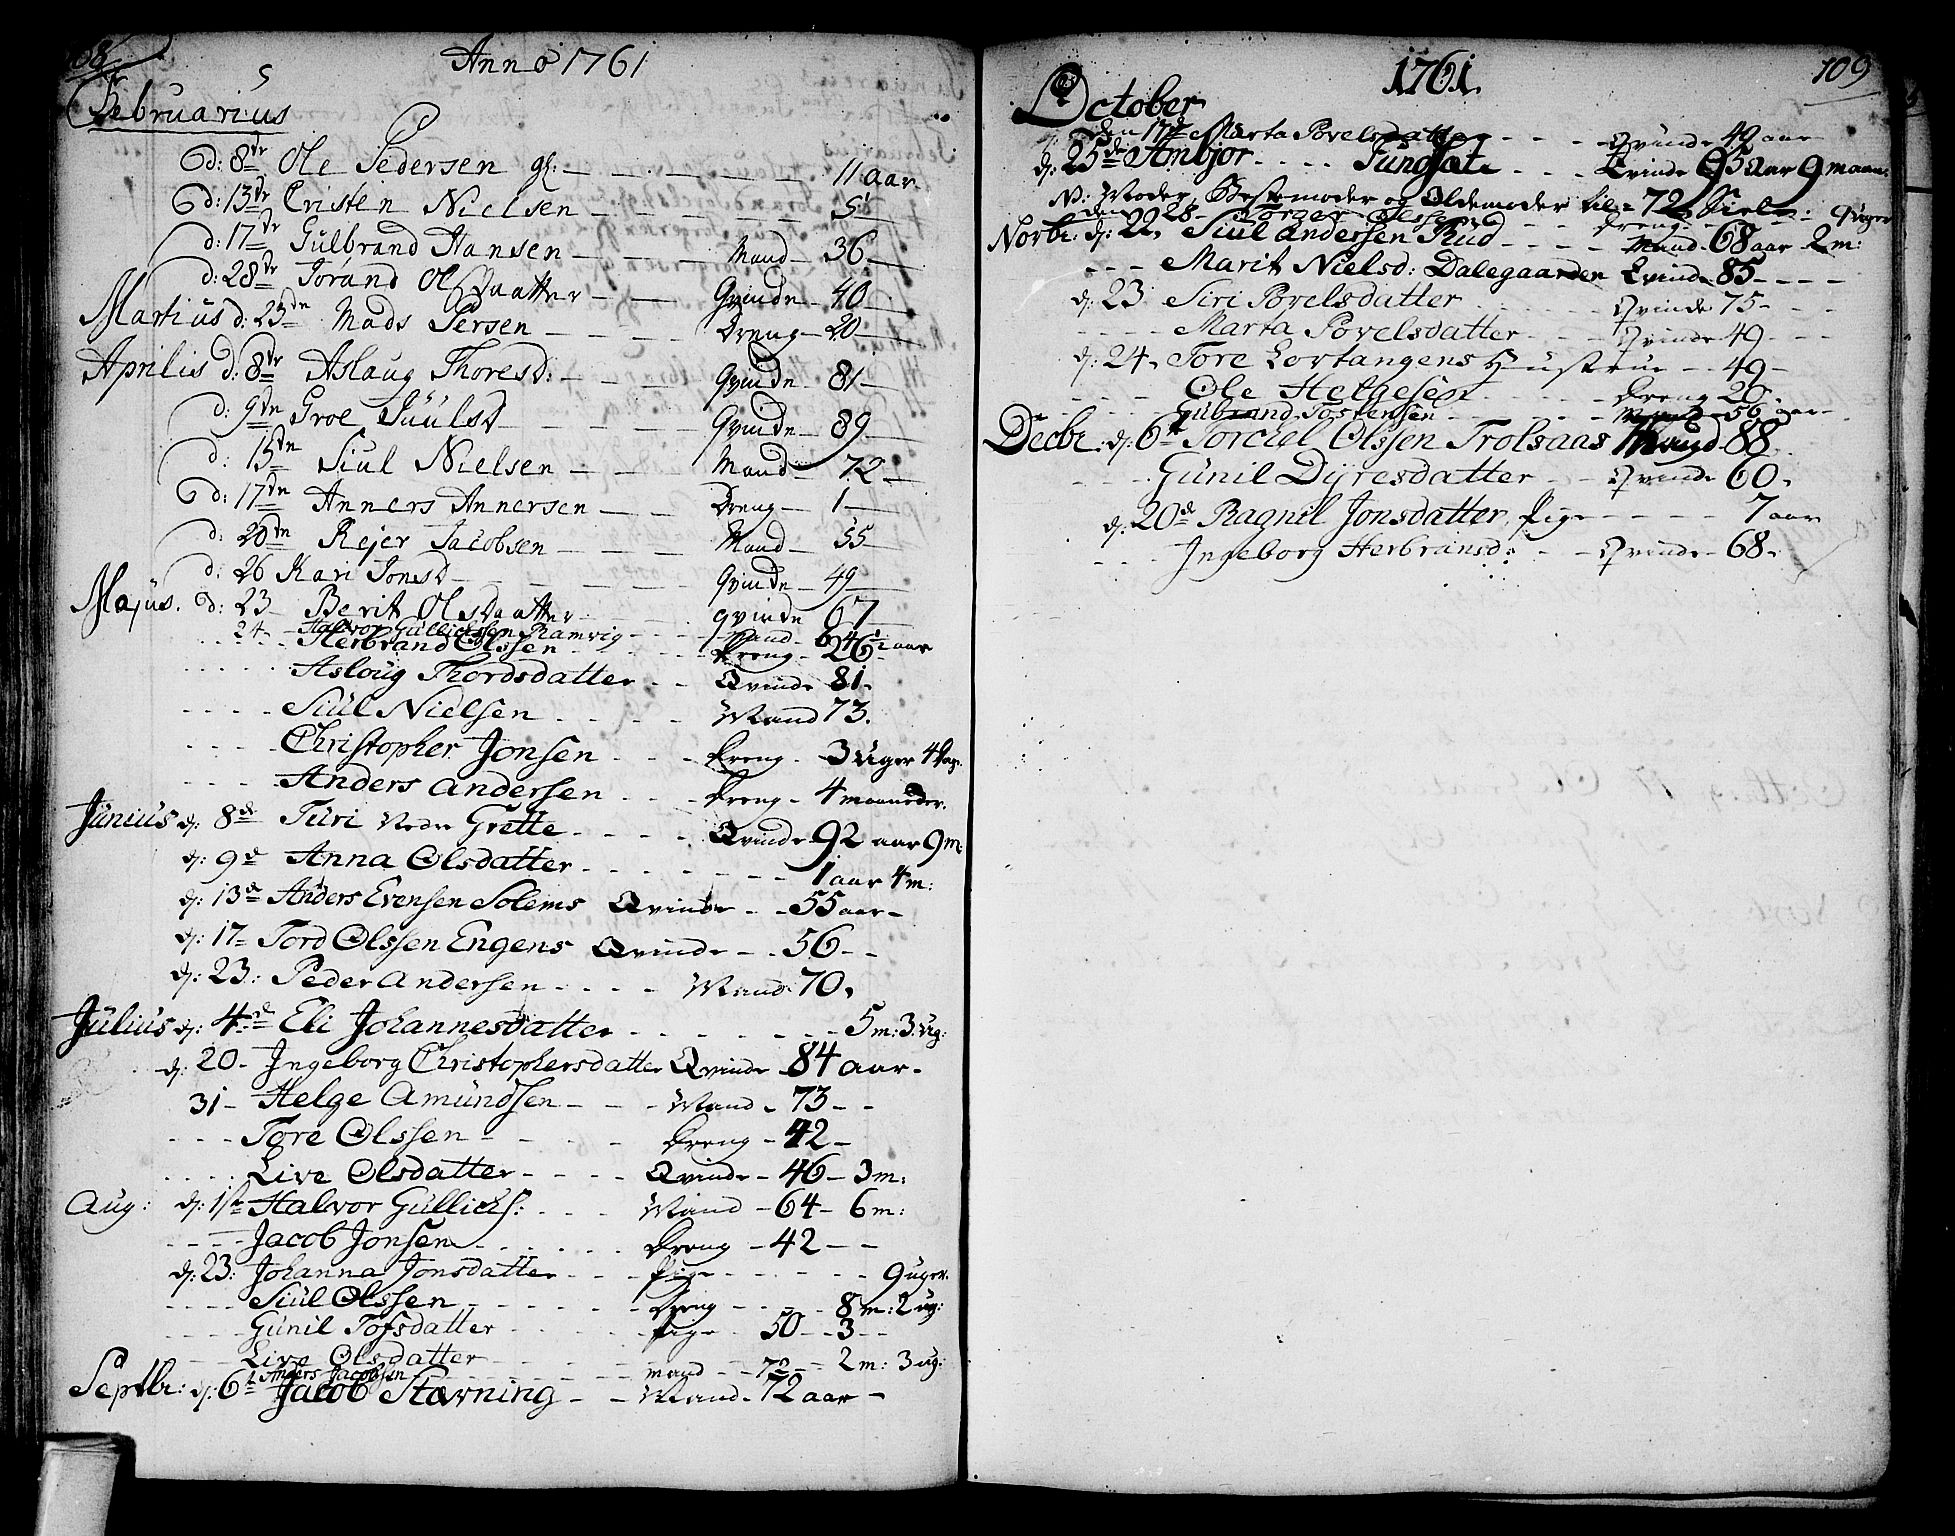 108
Anno 1761
Februarius
d: 8de Ole Pedersen gl: 11 aar
d: 13de Cristen Nielsen 5
d: 17de Gulbrand Hansen Mand 36
d: 28de Jorand Olsdaatter Qvinde 40
Martius d: 23de Mads Persen Dreng 20
Aprilis d: 8de Aslaug Thoresd: Qvinde 81
d: 9de Groe Siülsd Qvinde 89
d: 15de Siul Nielsen Mand 72
d: 17de Anners Annersen Dreng 1
d: 20de Rejer Jacobsen Mand 55
d: 26 Kari Jonsd Qvinde 49
Majus. d: 23 Berit Olsdaatter qvinde 67
24 Halvor Gullichssen Ramvig Mand 64½ aar
Herbrand Olssen Dreng 26
Asloug Thordsdatter Qvinde 81
Siul Nielsen Mand 73.
Christopher Jonsen Dreng 3 uger 4 Dag:
Anders Andersen Dreng 4 maaneder.
Junius d: 8de Turi Nedre Grette Qvinde 92 aar 9 m:
d: 9d Anna Olsdatter 1 aar 4 m:
d: 13de Anders Evensen Solems Qvinde 55 aar
d: 17 Tord Olssen Engens Qvinde 56
d: 23: Peder Andersen Mand 70,
Julius d: 4de Eli Johannesdatter 5 m: 3 ug:
d: 20 Ingeborg Christophersdatter Qvinde 84 aar
31 Helge Amundsen Mand 73
Tore Olssen Dreng 42
Live Olsdatter Qvinde 46 3 m:
Aug: d: 1st Halvor Gullichs: Mand 64 6 m:
Jacob Jonsen Dreng 42
d: 23: Johanna Jonsdatter Pige 9 uger.
Siul Olssen Dreng 8 m: 2 ug:
Gunil Tofsdatter Pige 50 3
Live Olsdatter 2 m: 3 ug:
Anders Jacobsen mand 72
Septbr: d: 6t Jacob Stavrning Mand 72 aar
1761.
109
October
den 17de Marta Povelsdatter Qvinde 49 aar
d: 25de Anbjor Tungsat Qvinde 95 aar 9 maan:
N: Moder, Bestemoder og Oldemoder til 72 Siele:
den 28 Torger Dreng 9 uger
Norbr: d: 22, Siul Andersen Rud Mand 68 aar 2 m:
Marit Nielsd: Dalegaarden Qvinde 85
d: 23 Siri Povelsdatter Qvinde 75
Marta Povelsdatter Qvinde 49
d: 24, Tore Lortangens Hustrue 49
Ole Helgesen Dreng 20
Gulbrand Tostensen Mand 56 aar
Decbr: d: 6t Torckel Olssen Trolsaas Mand 88
Gunil Dyresdatter Qvinde 60,
d: 20d Ragnil Jonsdatter, Pige 7 aar
Ingeborg Herbransd: Qvinde 68,